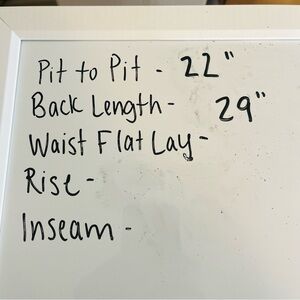 Pit to Pit - 22"
Back Length - 29"
Waist Flat Lay -
Rise -
Inseam -